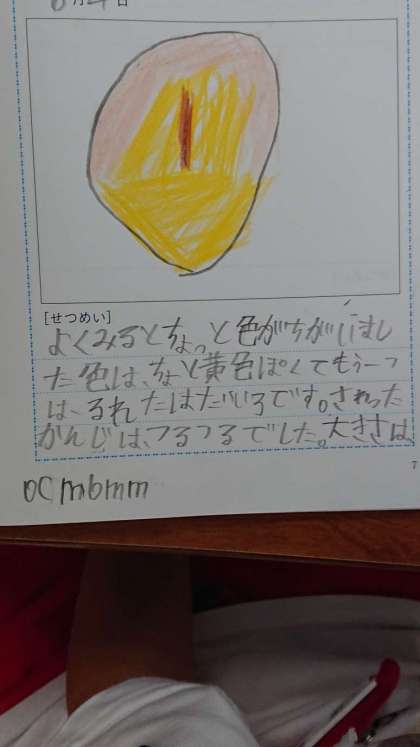 月 日
[せつめい]
よくみるとちょっと色がちがいまし
た色は、ちょと黄色ぽくてもう一つ
は、うすれたはだいろです。さわった
かんじは、つるつるでした。大きさは、
7
0cm6mm